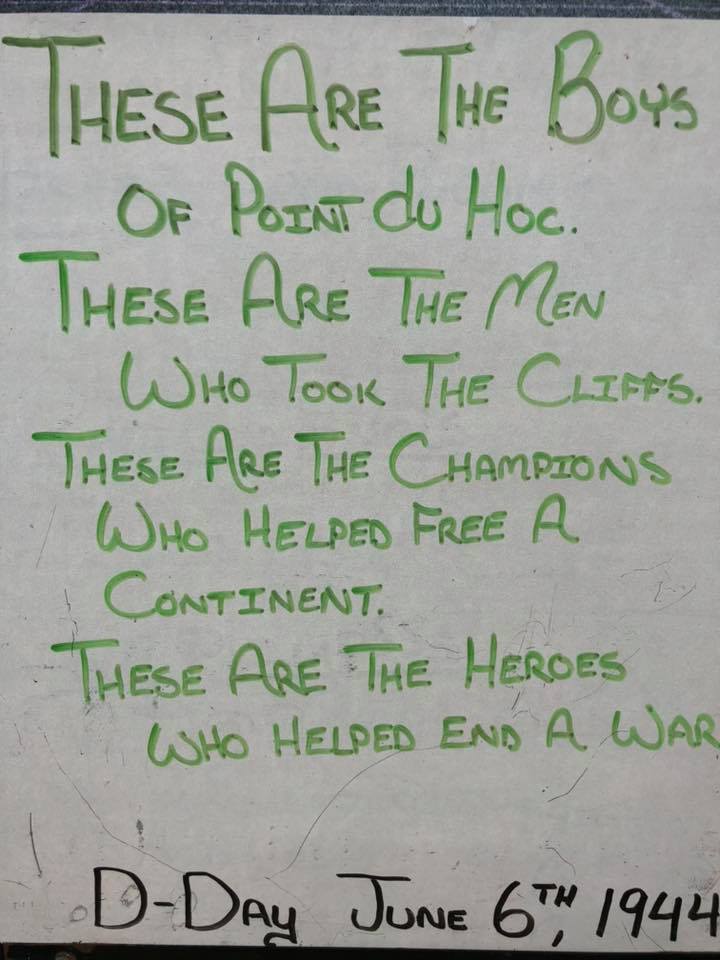 These Are The Boys
Of Point du Hoc.
These Are The Men
Who Took The Cliffs.
These Are The Champions
Who Helped Free A
Continent.
These Are The Heroes
Who Helped End A War
D-Day June 6TH, 1944